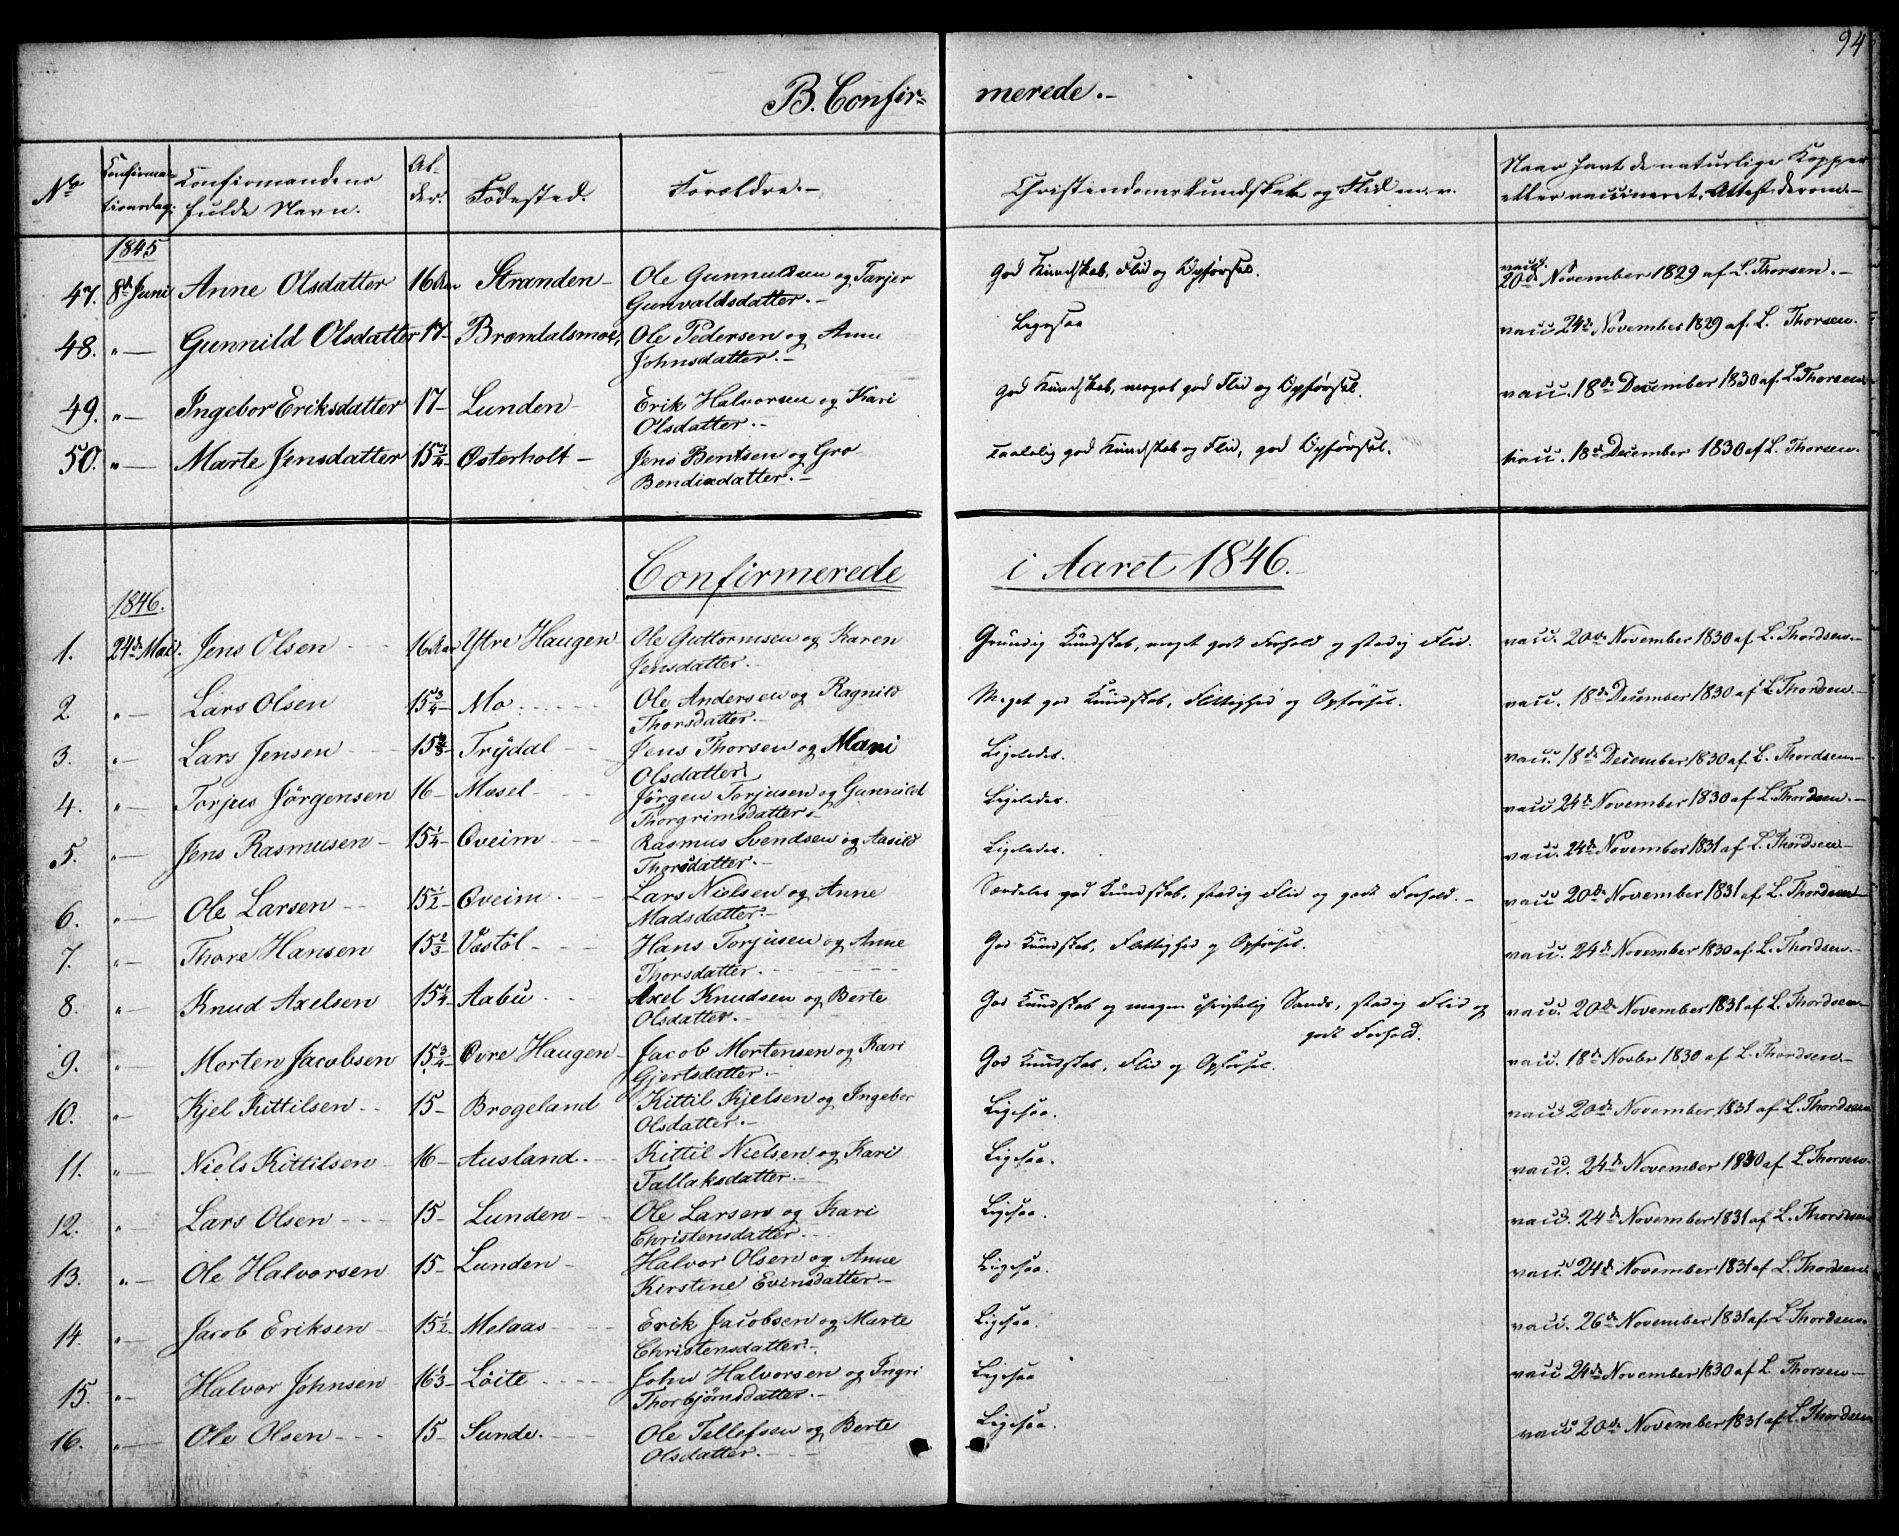 94
B. Confir= merede.-
No Confirma= Confirmandens Al= Fødested. Forældre.- Christendomskundskab og Flid m. v. Naar havt de naturlige Kopper
tionsdag. fulde Navn. der. eller vaccineret. Attest derom.-
1845
47. 8de Juni Anne Olsdatter 16 Aar Stranden- Ole Gunnuldsen og Tarjer God Kundskab, Flid og Opførsel. vacc. 20de November 1829 af L. Thorsen.-
Gunvaldsdatter.-
48. " - Gunnild Olsdatter 17- Bromdalsmoe, Ole Pedersen og Anne Ligesaa vacc 24de November 1829 af L. Thorsen.
Johnsdatter.-
49. " - Ingebor Eriksdatter 17- Lunden- Erik Halvorsen og Kari God Kundskab, meget god Flid og Opførsel. vacc. 18de December 1830 af L. Thorsen.
Olsdatter.-
50. " - Marte Jensdatter 15 3/4 Osterholt- Jens Bentsen og Gro taalelig god Kundskab og Flid, god Opførsel. vacc. 18de December 1830 af L. Thorsen.
Bendixdatter.-
Confirmerede i Aaret 1846.-
1846.
1. 24de Mai. Jens Olsen 16 Aar Ytre Haugen- Ole Guttormsen og Karen Grundig Kundskab, meget godt Forhold og stadig Flid. vacc. 20de November 1830 af L. Thordsen.-
Jensdatter.-
2. " - Lars Olsen 15 3/4- Mo Ole Andersen og Ragnild Meget god Kundskab, Flittighed og Opførsel. vacc. 18de December 1830 af L. Thordsen.-
Thorsdatter.-
3. " - Lars Jensen 15 2/3- Trydal Jens Thorsen og Mari Ligeledes. vacc. 18de December 1830 af L. Thordsen-
Olsdatter.
4. " - Torjus Jörgensen 16- Mosel Jörgen Torjusen og Gunnild Ligeledes. vacc 24de November 1830 af L. Thordsen.-
Thorgrimsdatter.-
5. " - Jens Rasmusen- 15 1/4- Oveim Rasmus Svendsen og Aasild Ligeledes. vacc. 24de November 1831 af L. Thordsen-
Thorsdatter.-
6. " - Ole Larsen 15 1/2- Oveim. Lars Nielsen og Anne Særdeles god Kundskab, stadig Flid og godt Forhold.- vacc 20de November 1831 af L. Thordsen
Madsdatter.-
7. " - Thore Hansen 15 2/3- Vestöl Hans Torjusen og Anne God Kundskab, Flittighed og Opførsel. vacc. 24de November 1830 af L. Thordsen.-
Thorsdatter.-
8. " - Knud Axelsen 15 1/4- Aabu Axel Knudsen og Berte God Kundskab og megen christelig Sands, stadig Flid og vacc. 20de November 1831 af L. Thordsen-
Olsdatter.- godt Forhold.
9. " - Morten Jacobsen 15 3/4- Øvre Haugen- Jacob Mortensen og Kari God Kundskab, Flid og Opførsel. vacc. 18de Novbr 1830 af L. Thordsen-
Gjertsdatter.-
10. " Kjel Kittilsen 15- Brogeland Kittil Kjelsen og Ingebor Ligesaa. vacc 20de November 1831 af L. Thordsen
Olsdatter.-
11. " Niels Kittilsen 16- Ausland. Kittil Nielsen og Kari Ligesaa. vacc. 24de November 1830 af L. Thorsen.
Tallaksdatter.-
12. " - Lars Olsen 15- Lunden Ole Larsen og Kari Ligesaa. vacc. 24de November 1831 af L. Thordsen
Christensdatter.
13. " - Ole Halvorsen 15- Lunden- Halvor Olsen og Anne Ligesaa. vacc. 24de November 1831 af L. Thordsen.
Kirstine Evensdatter-
14. " - Jacob Eriksen 15 1/2- Melaas Erik Jacobsen og Marte Ligesaa. vacc. 26de November 1831 af L. Thordsen.
Christensdatter.-
15. " - Halvor Johnsen 16 1/3- Löite John Halvorsen og Ingri Ligesaa vacc 24de November 1830 af L. Thorsen-
Thorbjörnsdatter.-
16. " - Ole Olsen 15- Sunde. Ole Tellefsen og Berte Ligesaa. vacc 20de November 1831 af L. Thordsen
Olsdatter.-